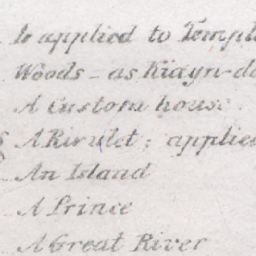 Is applied to Templ
Woods - as Kiayn-d
A Custom house.
A Rivulet; applie
An Island
A Prince
A Great River